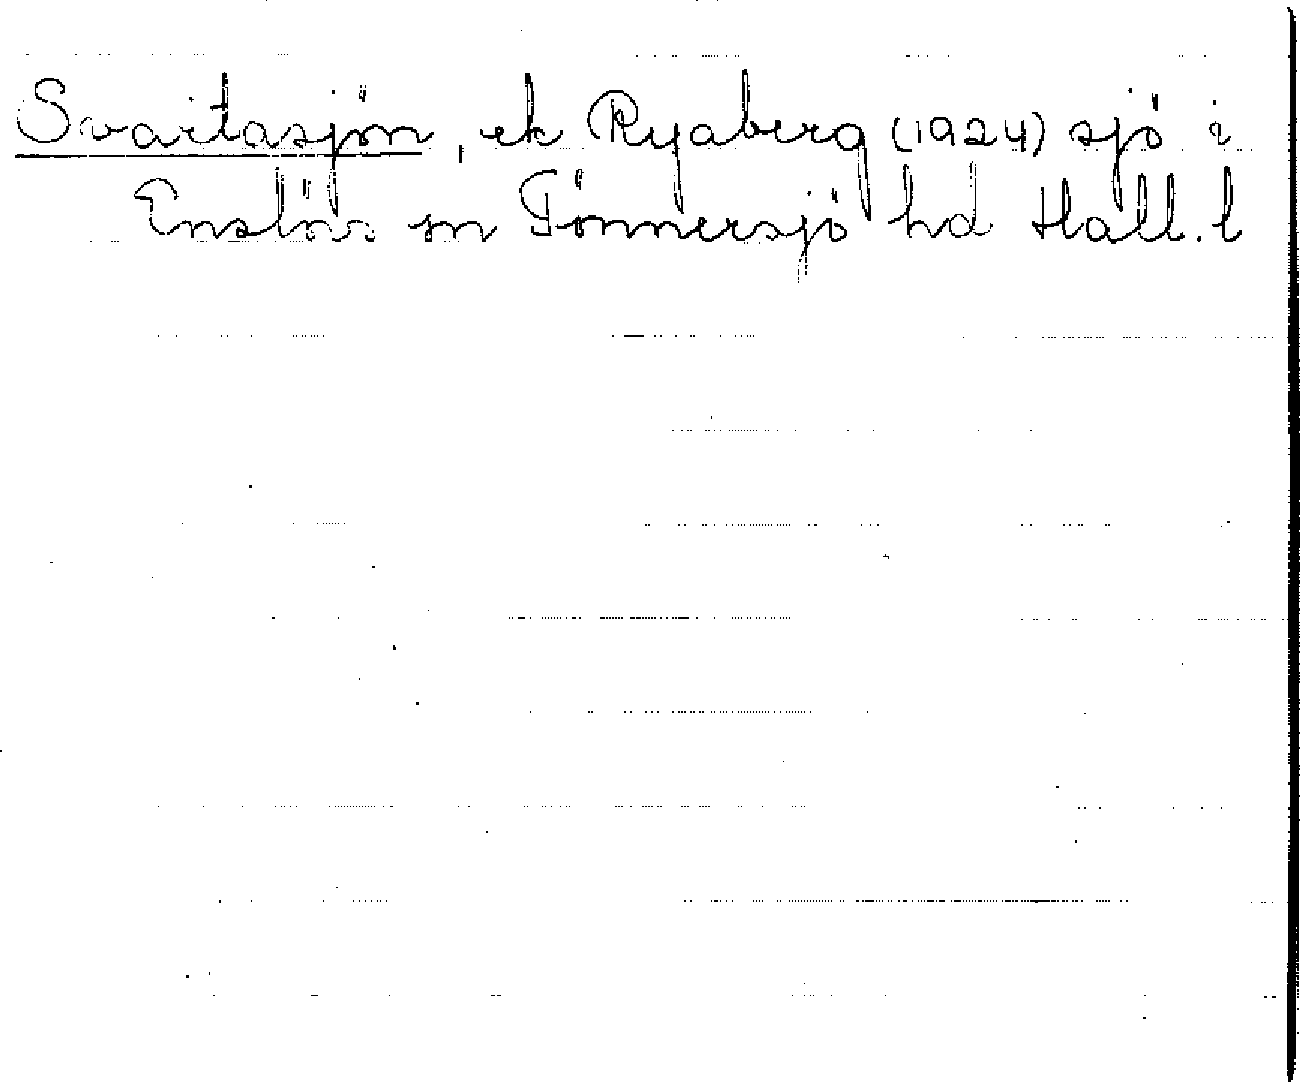 Svartasjön, ek Ryaberg (1924) sjö i
Enslövs sn Tönnersjö hd Hall. l